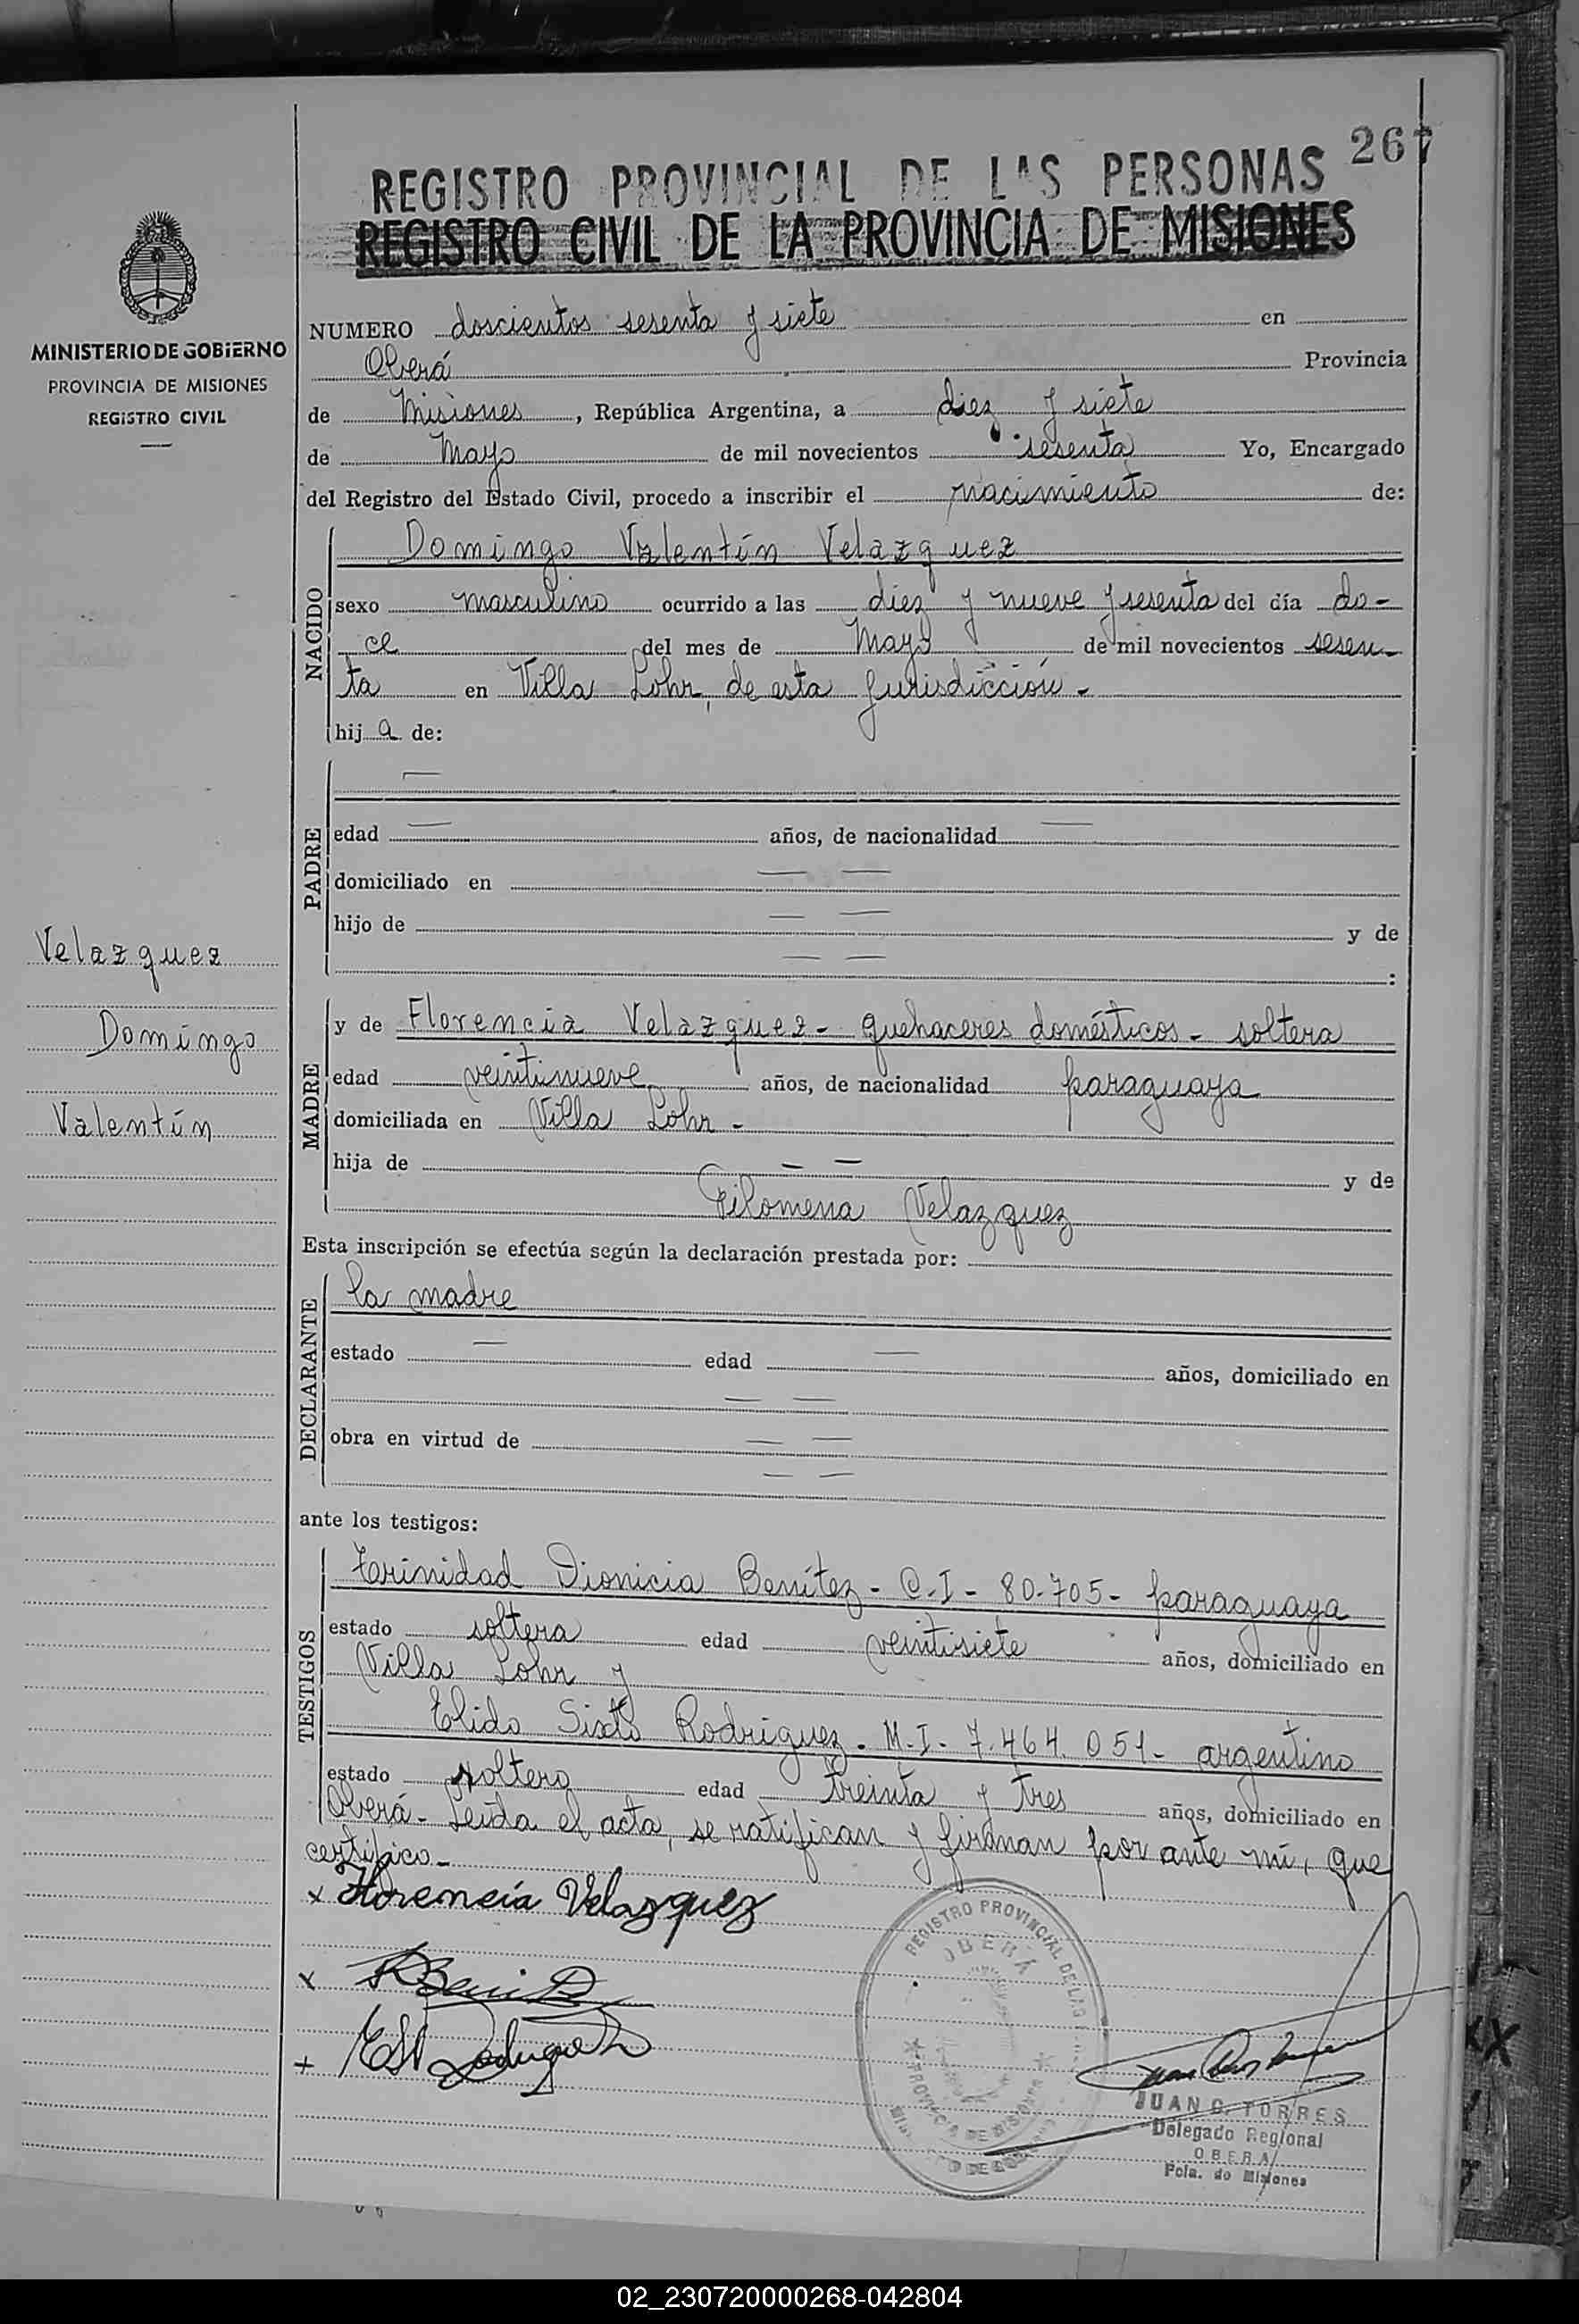 267
REGISTRO PROVINCIAL DE LAS PERSONAS
REGISTRO CIVIL DE LA PROVINCIA DE MISIONES
MINISTERIO DE GOBIERNO
PROVINCIA DE MISIONES
REGISTRO CIVIL
NUMERO doscientos sesenta y siete en
Oberá Provincia
de Misiones, República Argentina, a diez y siete
de Mayo de mil novecientos sesenta Yo, Encargado
del Registro del Estado Civil, procedo a inscribir el nacimiento de:
NACIDO
Domingo Valentín Velazquez
sexo masculino ocurrido a las diez y nueve y sesenta del día do-
ce del mes de Mayo de mil novecientos sesen-
ta en Villa Lohr, de esta jurisdicción -
hij a de:
PADRE
edad — años, de nacionalidad —
domiciliado en — —
hijo de — — y de
— — :
Velazquez
Domingo
Valentín
MADRE
y de Florencia Velazquez - quehaceres domésticos - soltera
edad veintinueve años, de nacionalidad paraguaya
domiciliada en Villa Lohr -
hija de — — y de
Filomena Velazquez
Esta inscripción se efectúa según la declaración prestada por:
DECLARANTE
la madre
estado — edad — años, domiciliado en
— —
obra en virtud de — —
— —
ante los testigos:
TESTIGOS
Trinidad Dionicia Benítez - C.I - 80.705 - paraguaya
estado soltera edad veintisiete años, domiciliado en
Villa Lohr y
Elido Sixto Rodriguez. M.I. 7.464.051 - argentino
estado soltero edad treinta y tres años, domiciliado en
Oberá - Leída el acta, se ratifican y firman por ante mí, que
certifico -
x Florencia Velazquez
x
+
REGISTRO PROVINCIAL DE LAS
OBERÁ
PROVINCIA DE MISIONES
JUAN C. TORRES
Delegado Regional
OBERA
Pcia. de Misiones
02_230720000268-042804